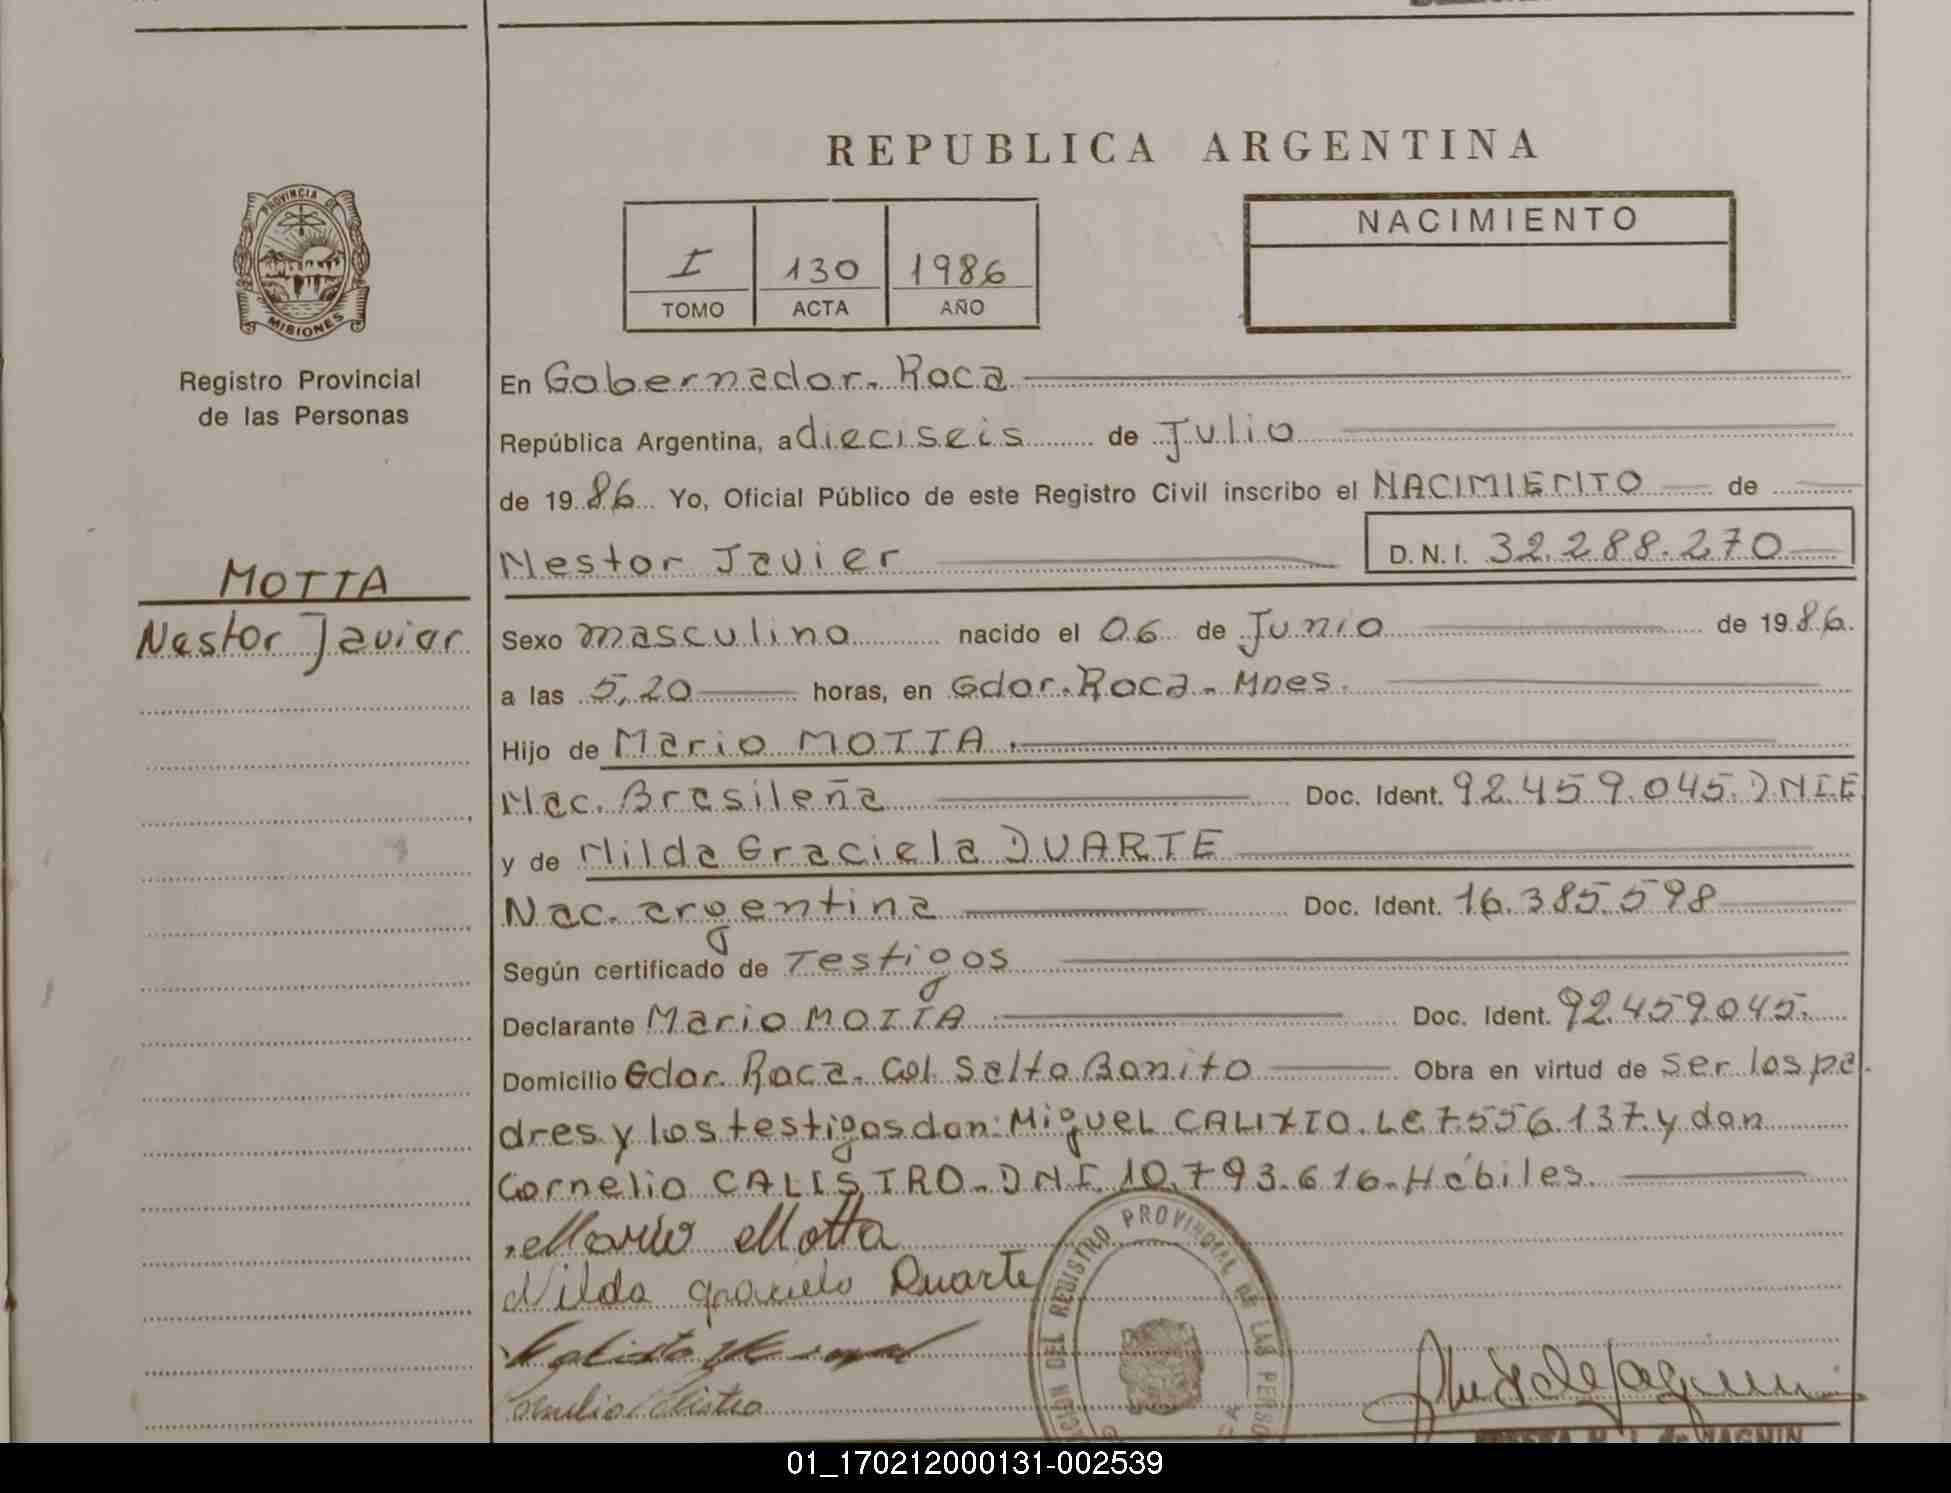 REPUBLICA ARGENTINA
PROVINCIA DE
MISIONES
Registro Provincial
de las Personas
I 130 1986
TOMO ACTA AÑO
NACIMIENTO
MOTTA
Nestor Javier
En Gobernador. Roca
República Argentina, a dieciseis de Julio
de 19 86 Yo, Oficial Público de este Registro Civil inscribo el NACIMIENTO de
Nestor Javier D.N.I. 32.288.270
Sexo masculino nacido el 06 de Junio de 19 86.
a las 5,20 horas, en Gdor. Roca. Mnes.
Hijo de Mario MOTTA.
Nac. Brasileña Doc. Ident. 92.459.045.DNIE
y de Nilda Graciela DUARTE
Nac. argentina Doc. Ident. 16.385.598
Según certificado de Testigos
Declarante Mario MOTTA Doc. Ident. 92.459.045.
Domicilio Gdor. Roca. Col. Salto Bonito Obra en virtud de ser los pa
dres y los testigos don: Miguel CALIXTO. LE 7.556.137. y don
Cornelio CALISTRO. DNI. 10.793.616. Hábiles.
Mario Motta
Nilda graciela Duarte
REGISTRO PROVINCIAL DE LAS PERSO
01_170212000131-002539